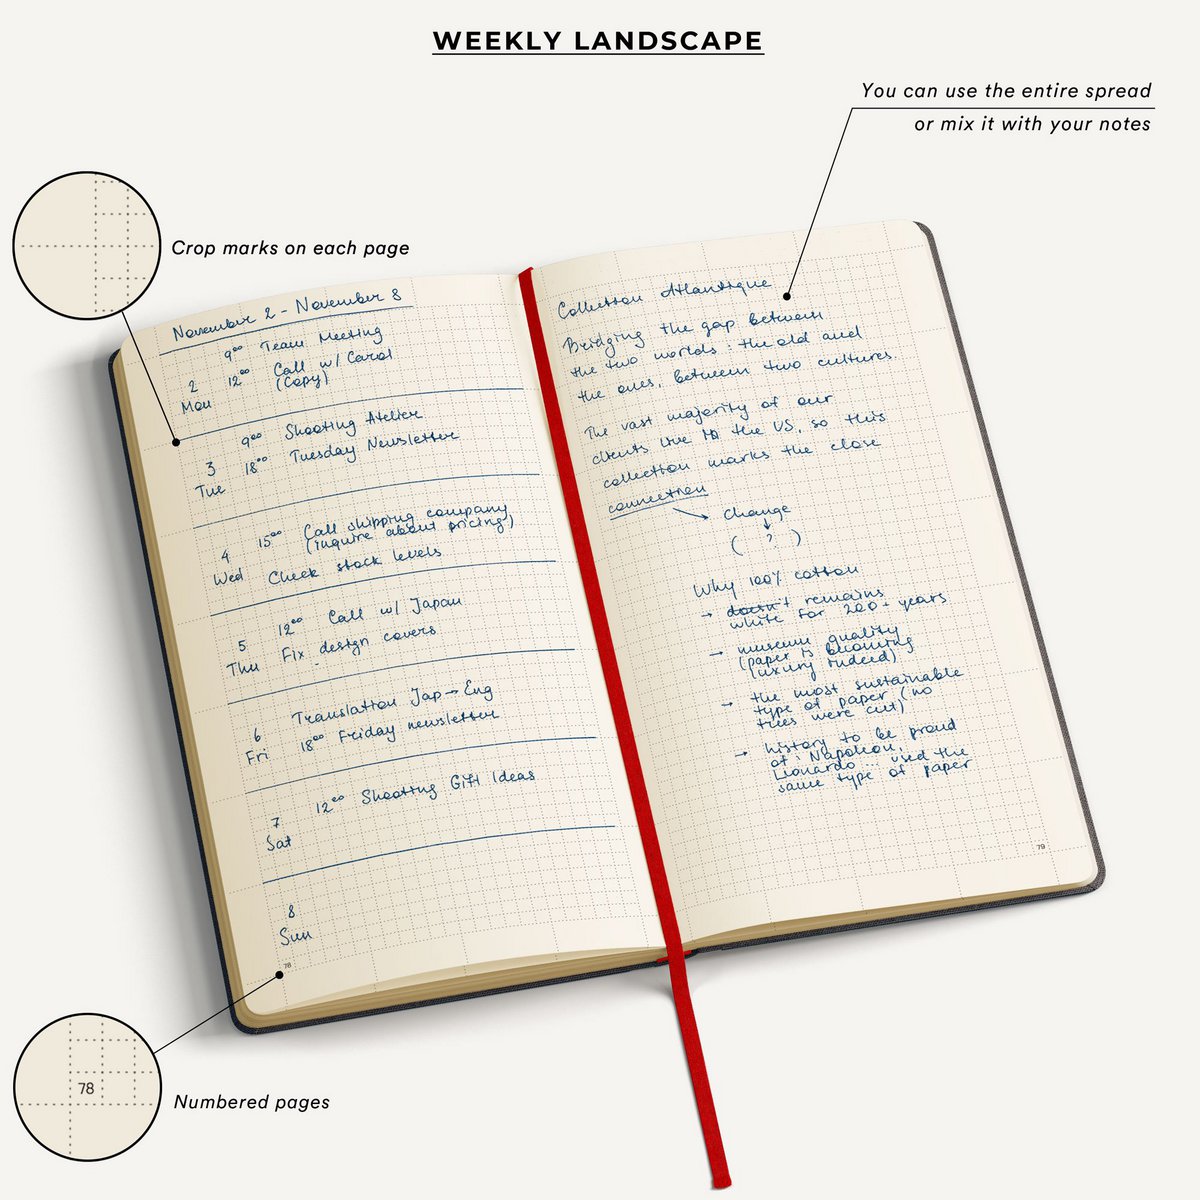 WEEKLY LANDSCAPE
You can use the entire spread
or mix it with your notes
Crop marks on each page
November 2 - November 8
9⁰⁰ Team Meeting
2 12⁰⁰ Call w/ Carol
Mon (Copy)
9⁰⁰ Shooting Atelier
3 18⁰⁰ Tuesday Newsletter
Tue
4 15⁰⁰ Call shipping company
(inquire about pricing)
Wed Check stock levels
5 12⁰⁰ Call w/ Japan
Thu Fix design covers
6 Translation Jap→Eng
Fri 18⁰⁰ Friday newsletter
7 12⁰⁰ Shooting Gift Ideas
Sat
8
Sun
78
Collection Atlantique
Bridging the gap between
the two worlds: the old and
the ones, between two cultures.
The vast majority of our
clients live in the US, so this
collection marks the close
connection
→ change
↓
( ? )
Why 100% cotton
→ doesn't remains
white for 200+ years
→ museum quality
(paper is blooming
luxury indeed)
→ the most sustainable
type of paper (no
trees were cut)
→ history to be proud
of: Napoleon,
Lionardo... used the
same type of paper
79
78
Numbered pages